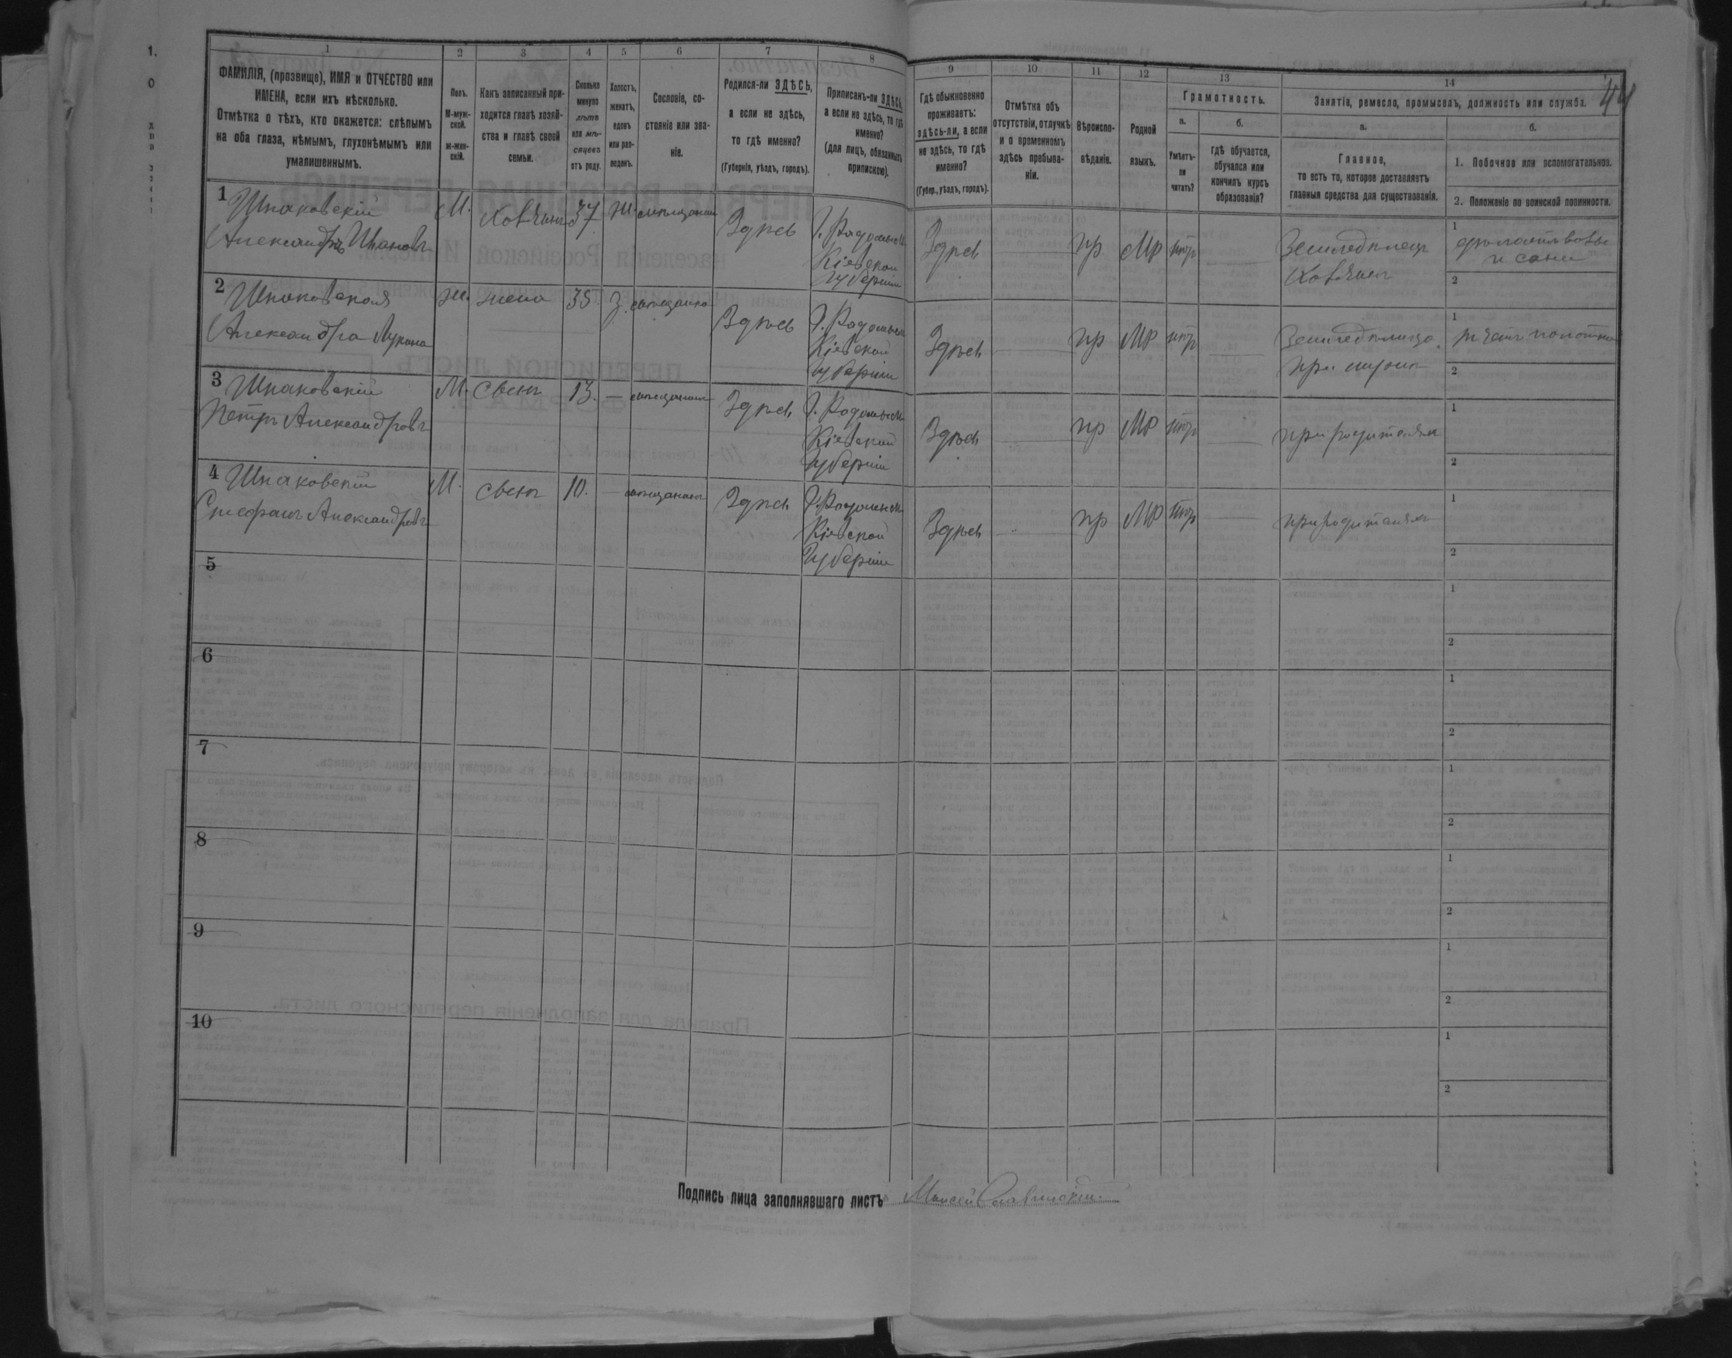 44
1 2 3 4 5 6 7 8 9 10 11 12 13 14
ФАМИЛІЯ, (прозвище), ИМЯ и ОТЧЕСТВО или
ИМЕНА, если ихъ нѣсколько.
Отмѣтка о тѣхъ, кто окажется: слѣпымъ
на оба глаза, нѣмымъ, глухонѣмымъ или
умалишеннымъ.
Полъ.
М-муж-
ской.
ж-жен-
скій.
Какъ записанный при-
ходится главѣ хозяй-
ства и главѣ своей
семьи.
Сколько
минуло
лѣтъ
или мѣ-
сяцевъ
отъ роду.
Холостъ,
женатъ,
вдовъ
или раз-
веденъ.
Сословіе, со-
стояніе или зва-
ніе.
Родился-ли ЗДѢСЬ,
а если не здѣсь,
то гдѣ именно?
(Губернія, уѣздъ, городъ).
Приписанъ-ли ЗДѢСЬ,
а если не здѣсь, то гдѣ
именно?
(для лицъ, обязанныхъ
припискою).
Гдѣ обыкновенно
проживаетъ:
здѣсь-ли, а если
не здѣсь, то гдѣ
именно?
(Губер., уѣздъ, городъ).
Отмѣтка объ
отсутствіи, отлучкѣ
и о временномъ
здѣсь пребыва-
ніи.
Вѣроиспо-
вѣданіе.
Родной
языкъ.
Грамотность.
а.
Умѣетъ-
ли
читать?
б.
гдѣ обучается,
обучался или
кончилъ курсъ
образованія?
Занятіе, ремесло, промыселъ, должность или служба.
а.
Главное,
то есть то, которое доставляетъ
главныя средства для существованія.
б.
1. Побочное или вспомогательное.
2. Положеніе по воинской повинности.
1
Шпаковскій
Александръ Ивановъ
М.
хозяинъ
37
Ж.
Здѣсь
Г. Радомысль
Кіевской
Губерніи
Здѣсь
пр
МР
Земледѣлецъ
Хозяинъ
1
2
2
Шпаковская
Александра Лукина
ж.
жена
35
З.
Здѣсь
Г. Радомысль
Кіевской
Губерніи
Здѣсь
пр
МР
1
2
3
Шпаковскій
Петръ Александровъ
М.
сынъ
13.
Здѣсь
Г. Радомысль
Кіевской
Губерніи
Здѣсь
пр
МР
при родителяхъ
1
2
4
Шпаковскій
Стефанъ Александровъ
М.
сынъ
10.
Здѣсь
Г. Радомысль
Кіевской
Губерніи
Здѣсь
пр
МР
при родителяхъ
1
2
5
1
2
6
1
2
7
1
2
8
1
2
9
1
2
10
1
2
Подпись лица заполнявшаго листъ